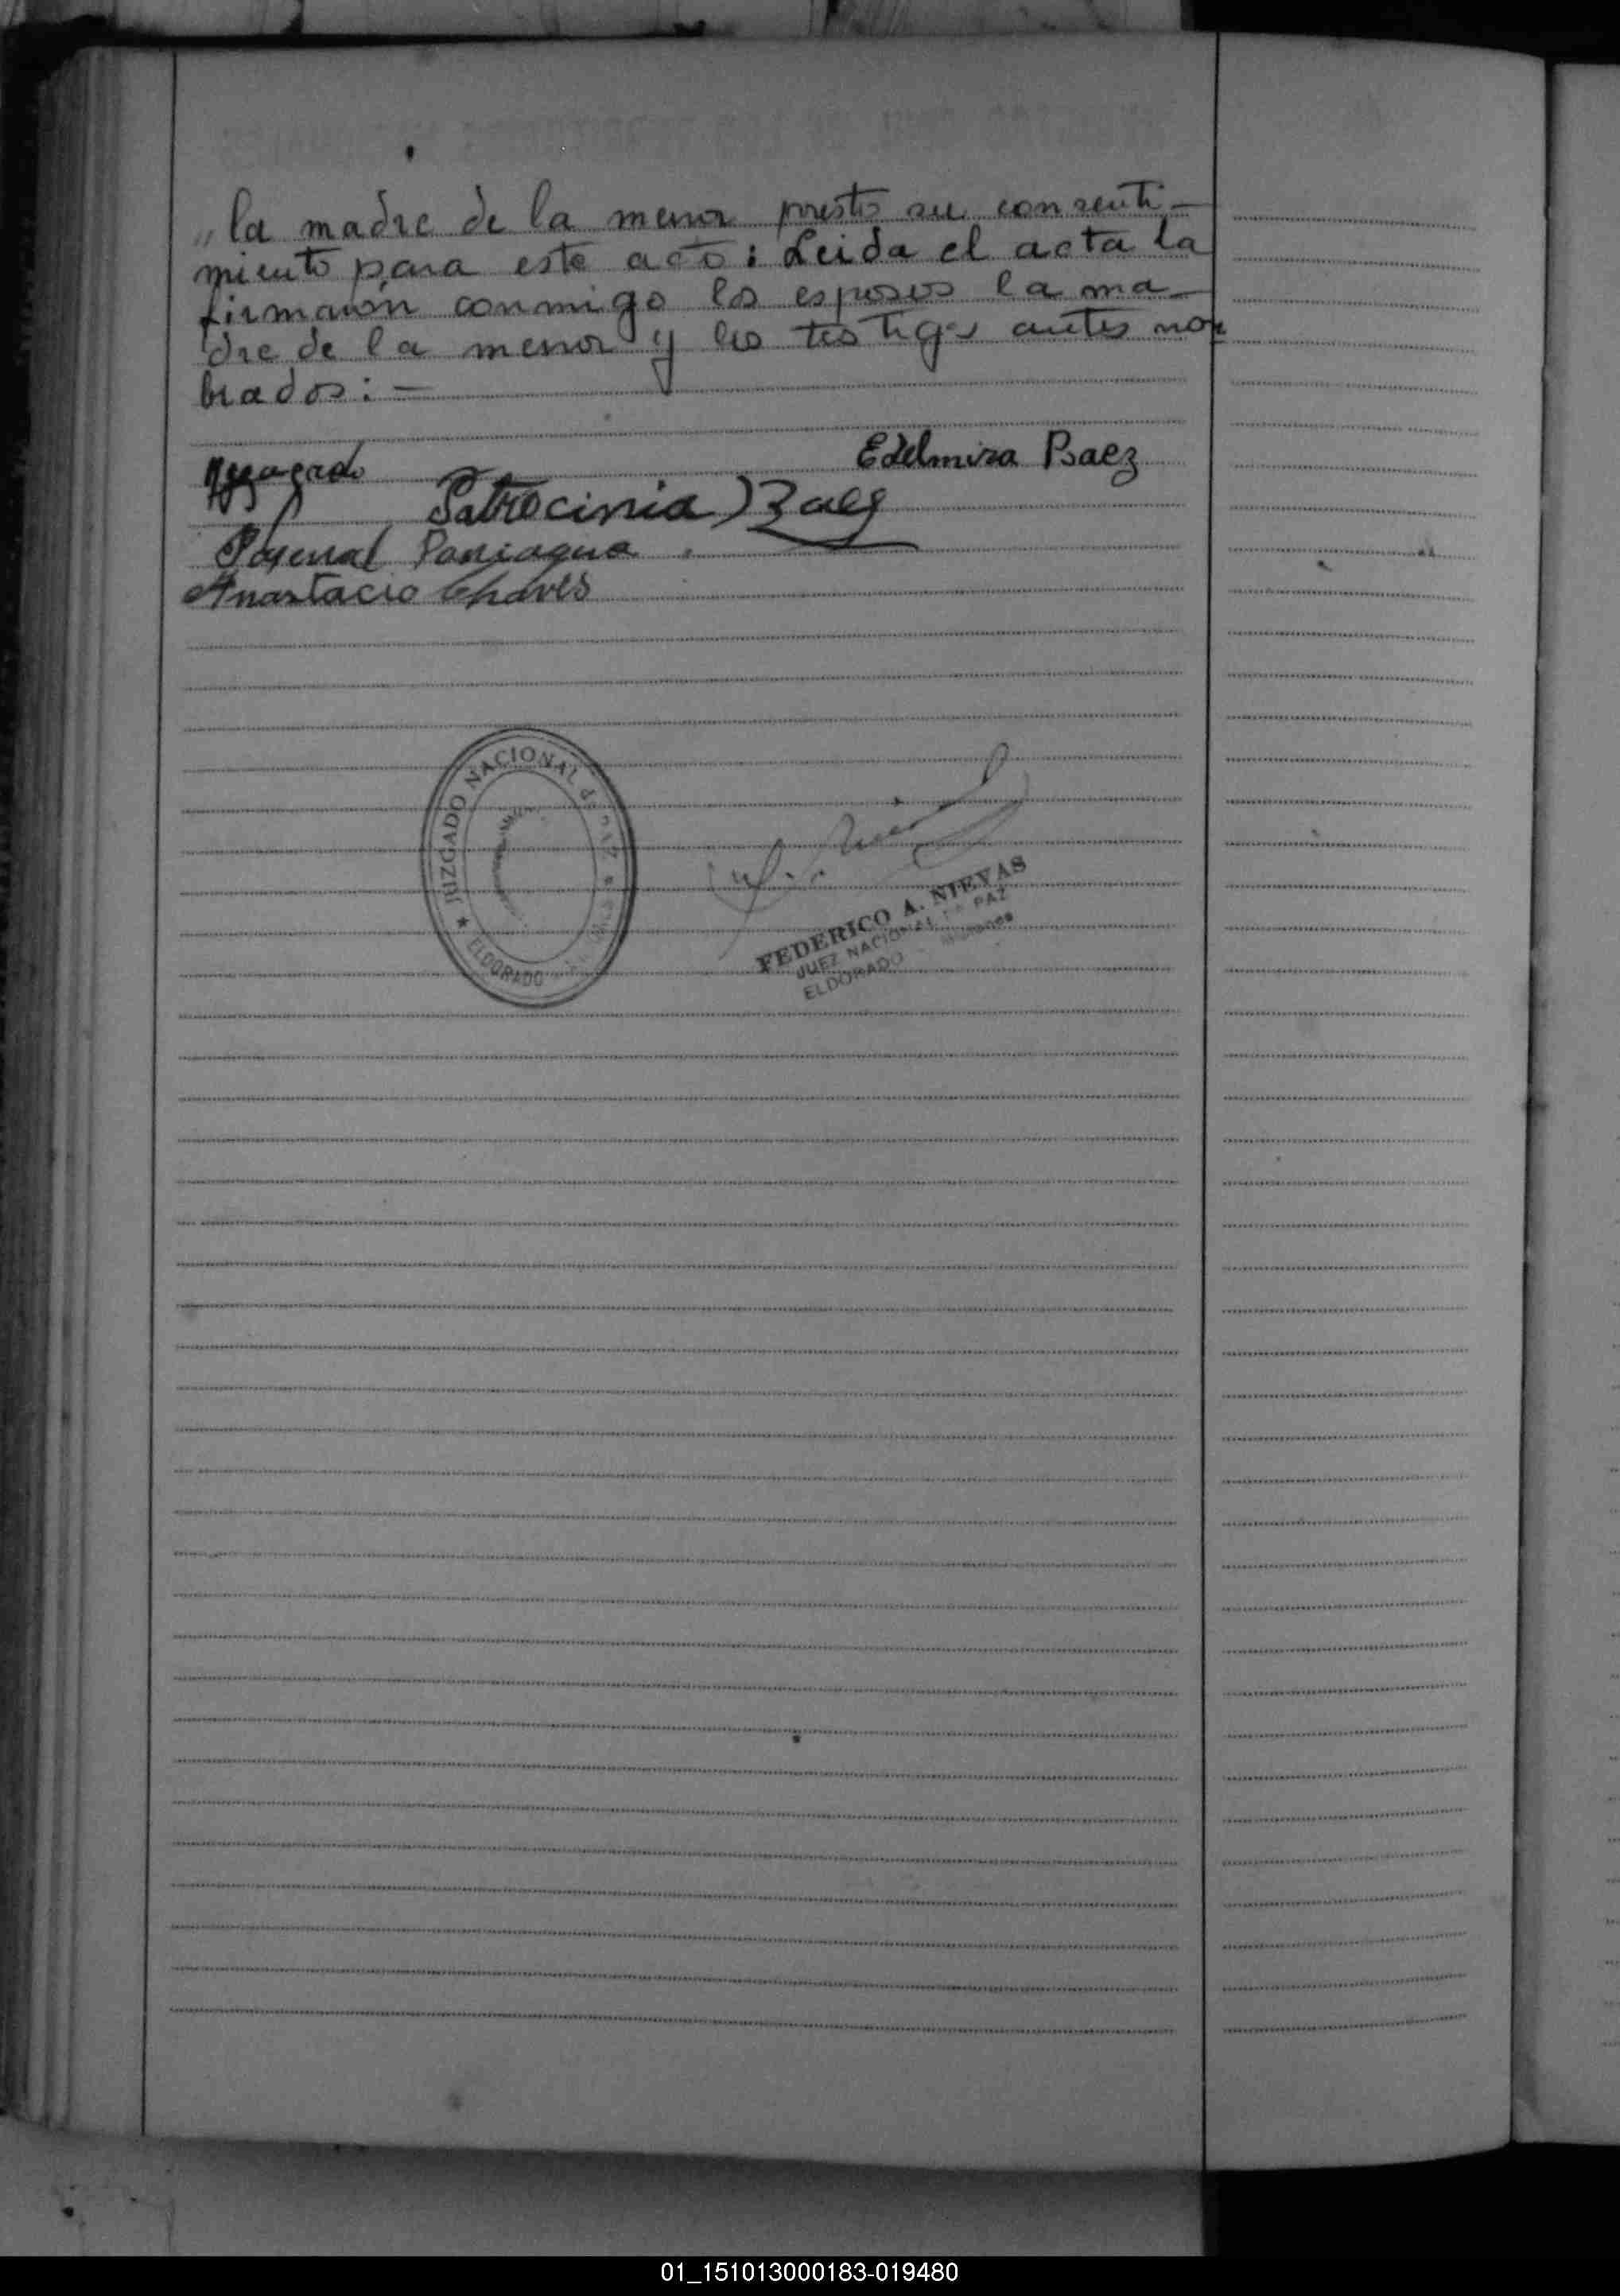 „ la madre de la menor presto su consenti-
miento para este acto: Leida el acta la
firmaron conmigo los esposos la ma-
dre de la menor y los testigos antes nom
brados: —
Edelmira Baez
Patrocinia Baez
Pascual Paniagua
Anastacio Chaves
JUZGADO NACIONAL de PAZ
ELDORADO
FEDERICO A. NIEVAS
JUEZ NACIONAL DE PAZ
ELDORADO Misiones
01_151013000183-019480